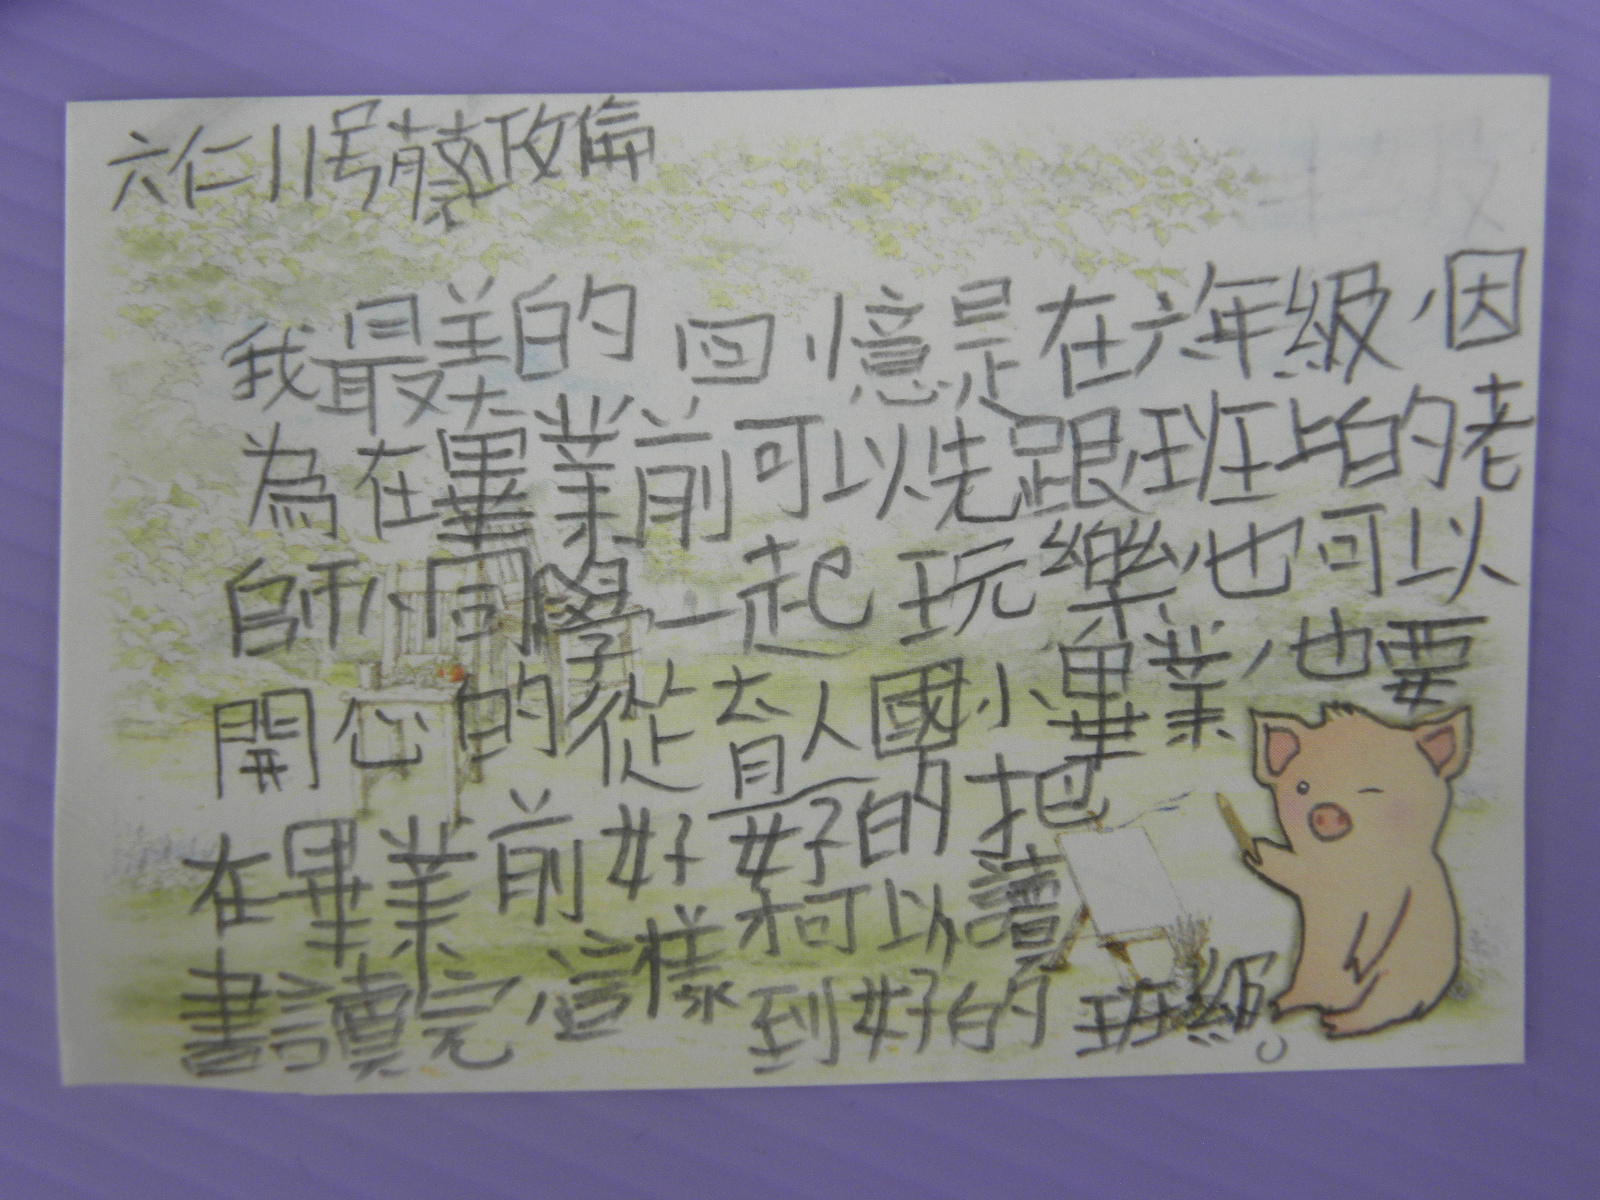 六仁11号蔡政倫
我最美的回憶是在六年級,因
為在畢業前可以先跟班上的的老
師、同學一起玩樂,也可以
開心的從育人國小畢業,也要
在畢業前好好的把
書讀完,這樣才可以讀
到好的班級。